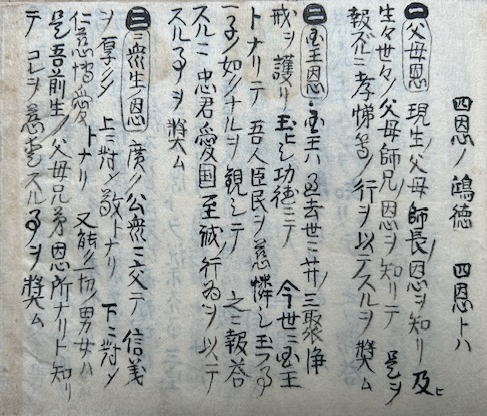 四恩ノ鴻徳 四恩トハ
一 父母恩 現生ノ父母師長ノ恩ヲ知リ及ヒ
生々世々ノ父母師兄ノ恩ヲ知リテ 是ヲ
報ズルニ孝悌等ノ行ヲ以テスルヲ奨ム
二 国王恩・国王ハ過去世ニ廾ノ三聚浄
戒ヲ護リ玉ヒシ功徳ニテ 今世ニ国王
トナリテ 吾人臣民ヲ慈憐シ玉フ
一子ノ如クナルヲ観シテ 之ニ報答
スルニ 忠君愛国至誠ノ行為ヲ以テ
スルヲ奨ム
三 衆生恩 広ク公衆ニ交テ 信義
ヲ厚シ 上ニ対シ敬トナリ 下ニ対シ
仁慈惜愛トナリ 又能ク一切ノ男女ハ
是吾前生ノ父母兄弟恩所ナリト知リ
テ コレヲ慈スルヲ奨ム